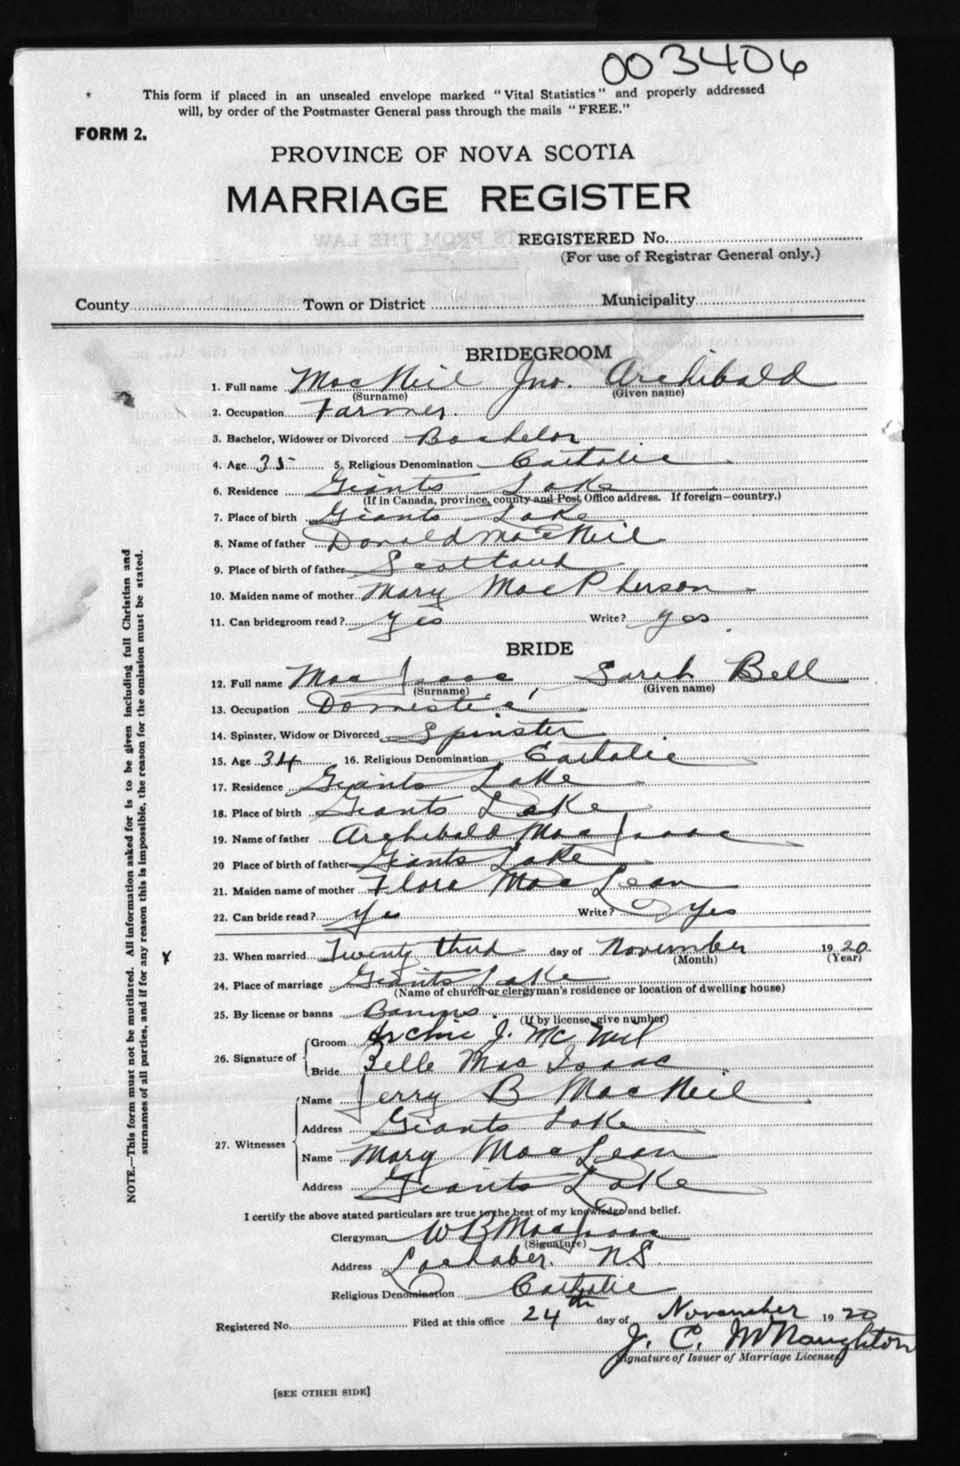 003406
This form if placed in an unsealed envelope marked "Vital Statistics" and properly addressed
will, by order of the Postmaster General pass through the mails "FREE."
FORM 2.
PROVINCE OF NOVA SCOTIA
MARRIAGE REGISTER
REGISTERED No.
(For use of Registrar General only.)
County Town or District Municipality
BRIDEGROOM
1. Full name MacNeil Jno. Archibald
(Surname) (Given name)
2. Occupation Farmer.
3. Bachelor, Widower or Divorced Bachelor
4. Age 35 5. Religious Denomination Catholic
6. Residence Giants Lake
(If in Canada, province, county and Post Office address. If foreign—country.)
7. Place of birth Giants Lake
8. Name of father Donald MacNeil
9. Place of birth of father Scotland
10. Maiden name of mother Mary MacPherson
11. Can bridegroom read? Yes Write? Yes.
BRIDE
12. Full name MacIsaac, Sarah Bell
(Surname) (Given name)
13. Occupation Domestic
14. Spinster, Widow or Divorced Spinster
15. Age 34 16. Religious Denomination Catholic
17. Residence Giants Lake
18. Place of birth Giants Lake
19. Name of father Archibald MacIsaac
20 Place of birth of father Giants Lake
21. Maiden name of mother Flora MacLean
22. Can bride read? Yes Write? Yes
23. When married Twenty third day of November 1920
(Month) (Year)
24. Place of marriage Giants Lake
(Name of church or clergyman's residence or location of dwelling house)
25. By license or banns Banns.
(If by license, give number)
26. Signature of Groom Archie J. McNeil
Bride Belle MacIsaac
27. Witnesses
Name Jerry B MacNeil
Address Giants Lake
Name Mary MacLean
Address Giants Lake
I certify the above stated particulars are true to the best of my knowledge and belief.
Clergyman W B MacIsaac
(Signature)
Address Lochaber. N.S.
Religious Denomination Catholic
Registered No. Filed at this office 24th day of November 1920
J. C. McNaughton
Signature of Issuer of Marriage Licenses
[SEE OTHER SIDE]
NOTE.—This form must not be mutilated. All information asked for is to be given including full Christian and
surnames of all parties, and if for any reason this is impossible, the reason for the omission must be stated.